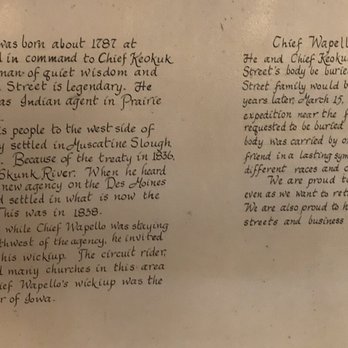 was born about 1787 at
d in command to Chief Keokuk
man of quiet wisdom and
Street is legendary. He
as Indian agent in Prairie
is people to the west side of
y settled in Muscatine Slough
. Because of the treaty in 1836,
Skunk River. When he heard
new agency on the Des Moines
d settled in what is now the
This was in 1838.
while Chief Wapello was staying
thwest of the agency, he invited
his wickiup. The circuit rider,
d many churches in this area
ief Wapello's wickiup was the
r of Iowa.
Chief Wapello
He and Chief Keokuk
Street's body be buried
Street family would b
years later, March 15,
expedition near the f
requested to be buried
body was carried by o
friend in a lasting sym
different races and c
We are proud t
even as we want to ret
We are also proud to h
streets and business